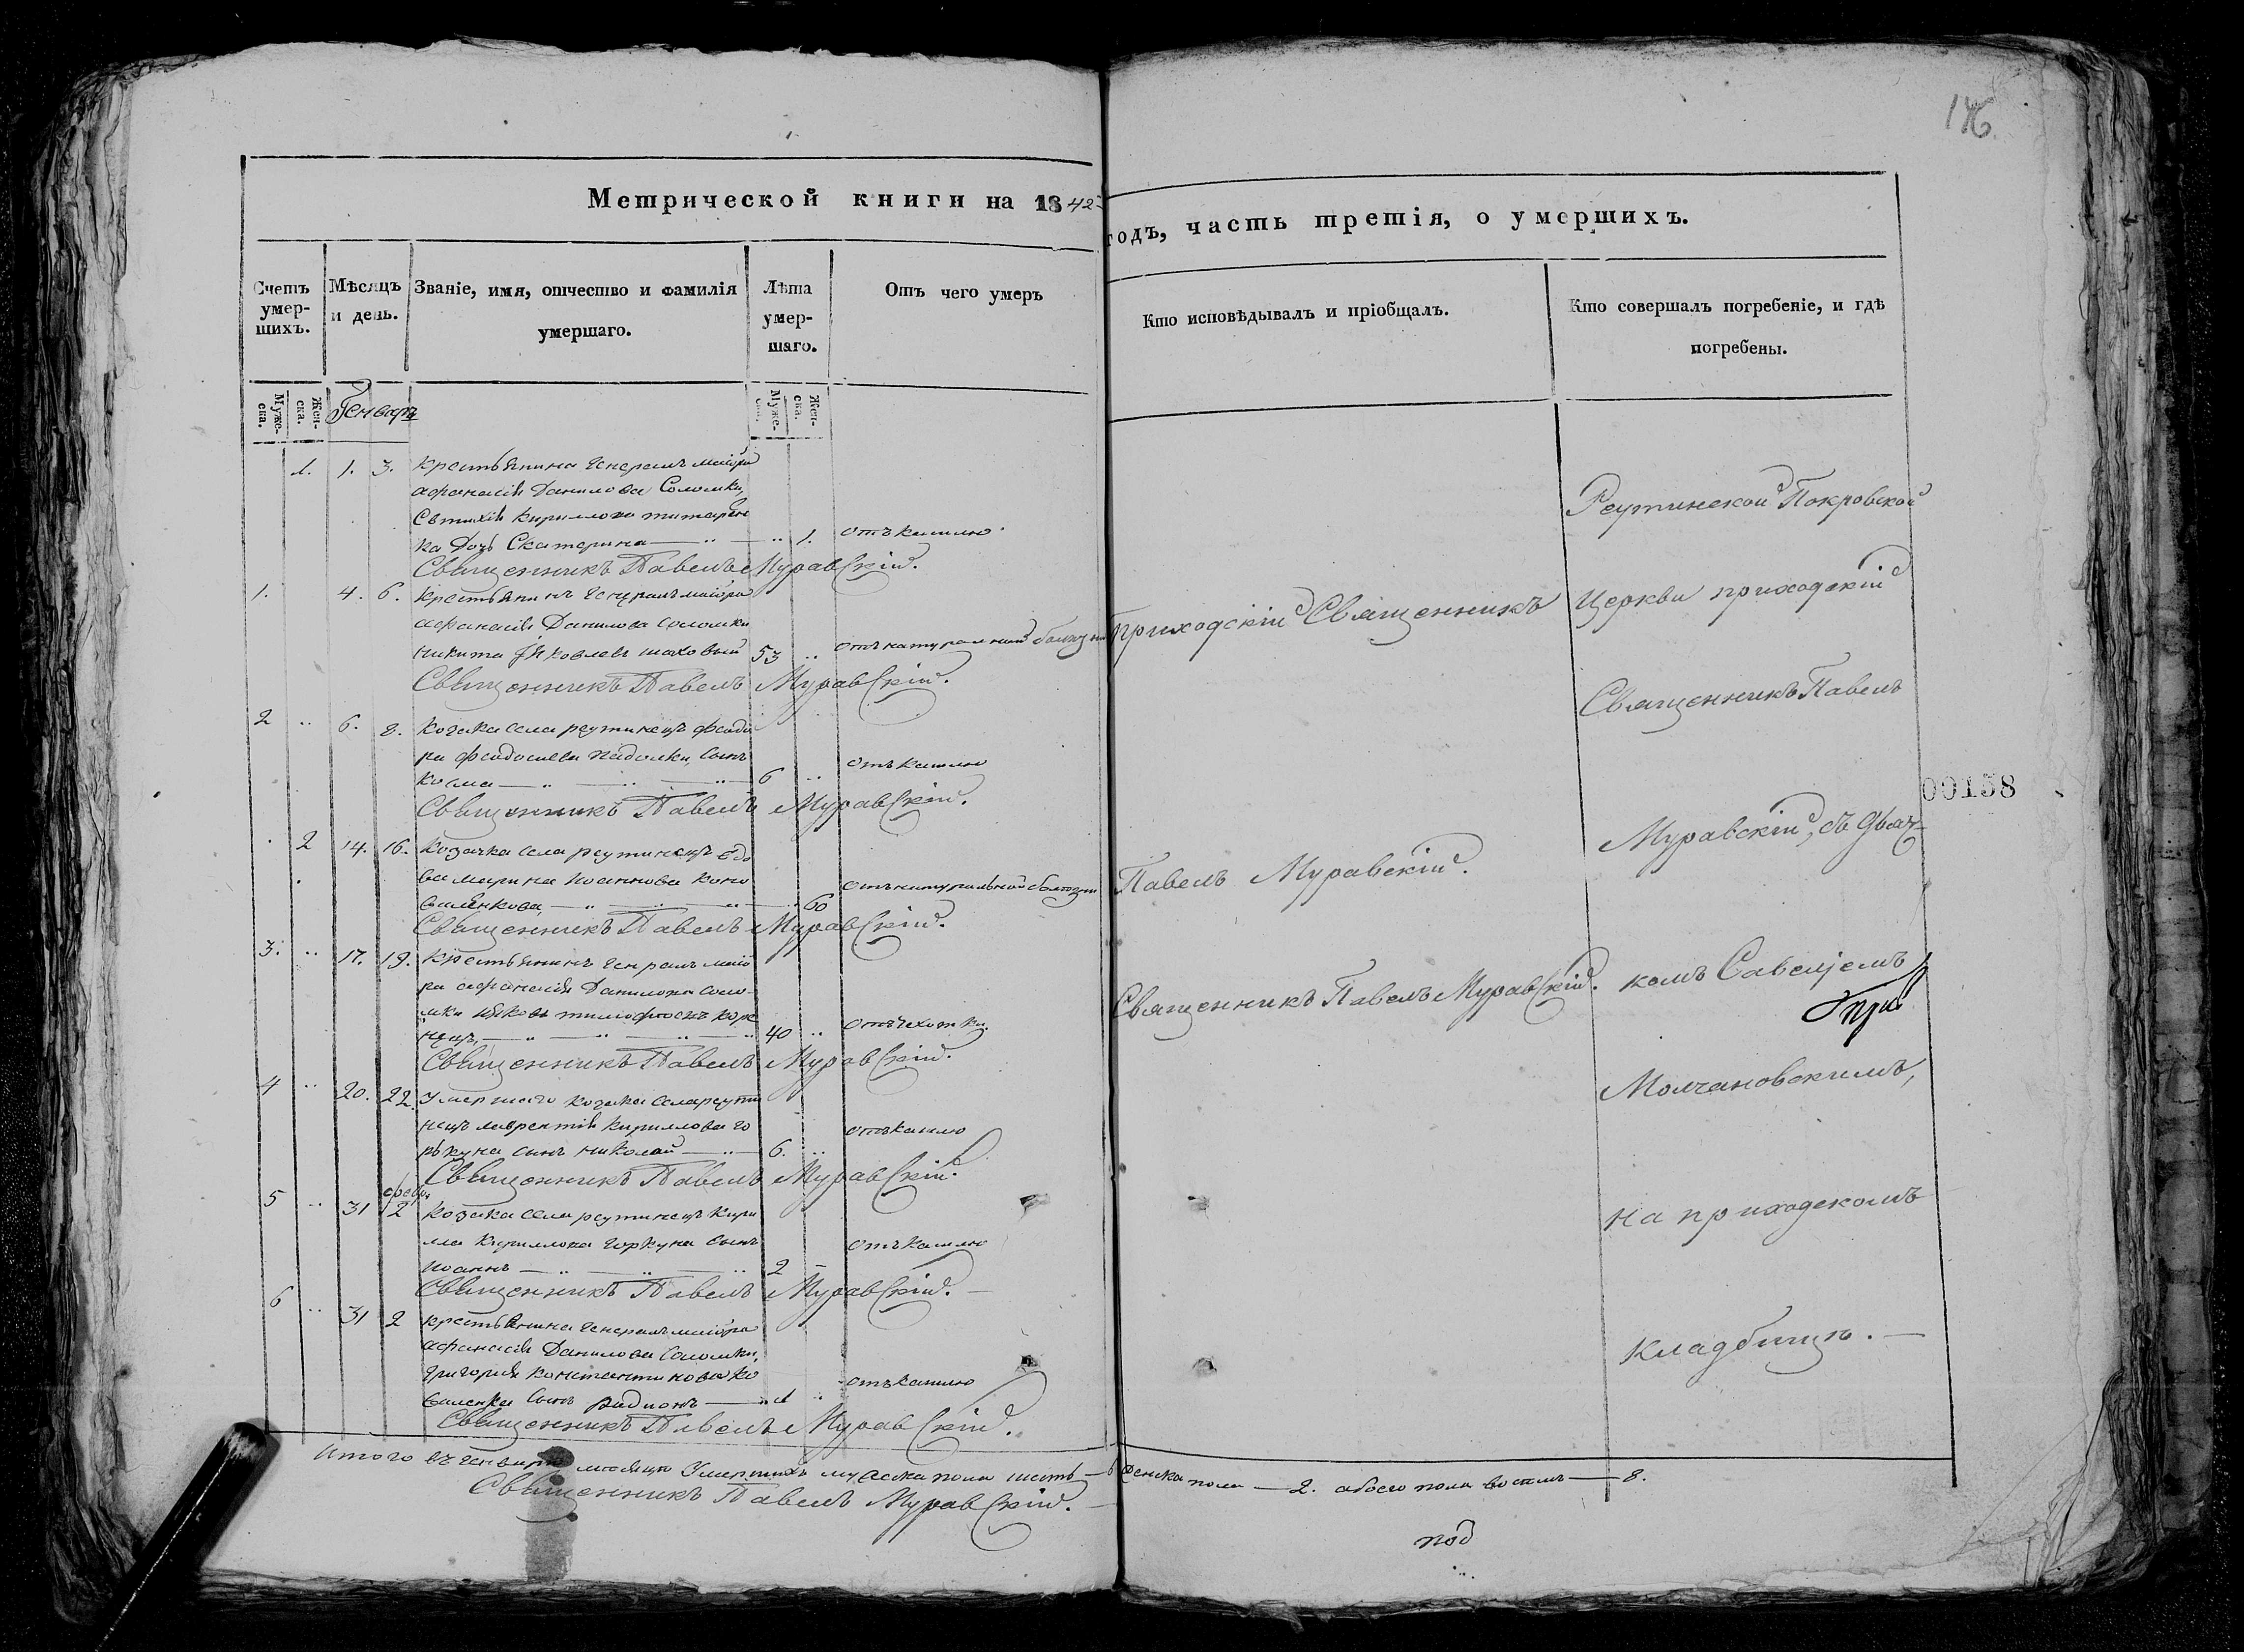 176.
Метрической книги на 1842
годъ, часть третія, о умершихъ.
Счетъ умер-
шихъ.
Мѣсяцъ
и день.
Званіе, имя, отчество и фамилія
умершаго.
Лѣта
умер-
шаго.
Отъ чего умеръ
Кто исповѣдывалъ и пріобщалъ.
Кто совершалъ погребеніе, и гдѣ
погребены.
Муже-
ска.
Жен-
ска.
Генварь
Муже-
ска.
Жен-
ска.
1. 1. 3. Крестьянина Генералъ маіора
афанасія Данилова Соломки,
Евтихія Кириллова титарен
ка Дочь Екатерина 1. отъ кашлю
Священникъ Павелъ Муравскій.
1. 4. 6. Крестьянинъ Генералъ маіора
афанасія Данилова Соломки
Никита Яковлевъ шаховый 53 отъ натуралной болезни
Священникъ Павелъ Муравскій.
2 6. 8. Козака села реутинецъ феодо
ра феодосиева падалки, сынъ
Косма 6 отъ кашлю
Священникъ Павелъ Муравскій.
2 14. 16. Козачка села реутинецъ вдо
ва марина Иоаннова Коно
валенкова, 60 отъ натуральной болезни
Священникъ Павелъ Муравскій.
3. 17. 19. Крестьянинъ Генералъ маіо
ра афанасія Данилова Соло
мки Яковъ тимофеевъ Корс
нецъ, 40 отъ чехотки
Священникъ Павелъ Муравскій.
4 20. 22. Умершаго козака села реути
нецъ лаврентія Кириллова го
ркуна сынъ николай 6. отъ кашлю
Священникъ Павелъ Муравскій.
февр.
5 31 2 Козака села реутинецъ Кири
ла Кириллова горкуна сынъ
Иоаннъ 2 отъ кашлю
Священникъ Павелъ Муравскій.
6 31 2 Крестьянина Генералъ маіора
афанасія Данилова Соломки,
григорія Константинова ко
валенка сынъ родионъ 1 отъ кашлю
Священникъ Павелъ Муравскій.
Итого въ Генваре месяце Умершихъ мужеска пола шесть 6 женска пола 2. обоего пола восемь 8.
Священникъ Павелъ Муравскій.
Приходскій Священникъ
Павелъ Муравскій.
Священникъ Павелъ Муравскій.
Реутинской Покровской
Церкви приходскій
Священникъ Павелъ
Муравскій, съ дьяч-
комъ Савеліемъ
Молчановскимъ,
на приходскомъ
кладбищѣ.
00158
под